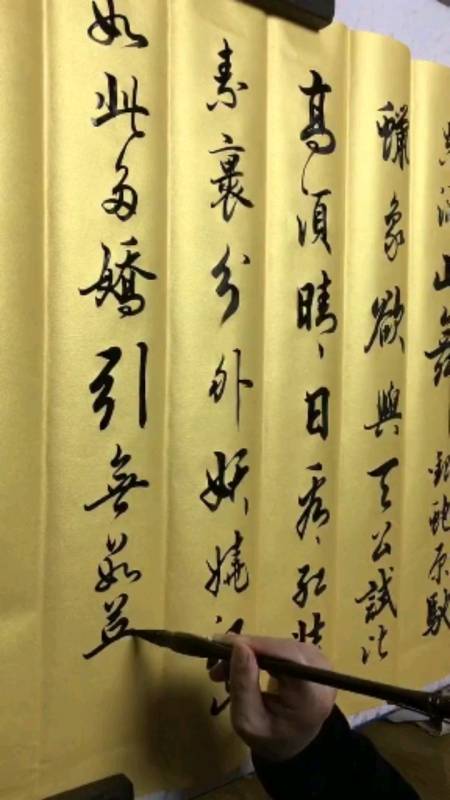 滔山舞銀蛇原馳
蠟象欲與天公試比
高須晴日看紅裝
素裹分外妖嬈江山
如此多嬌引無數